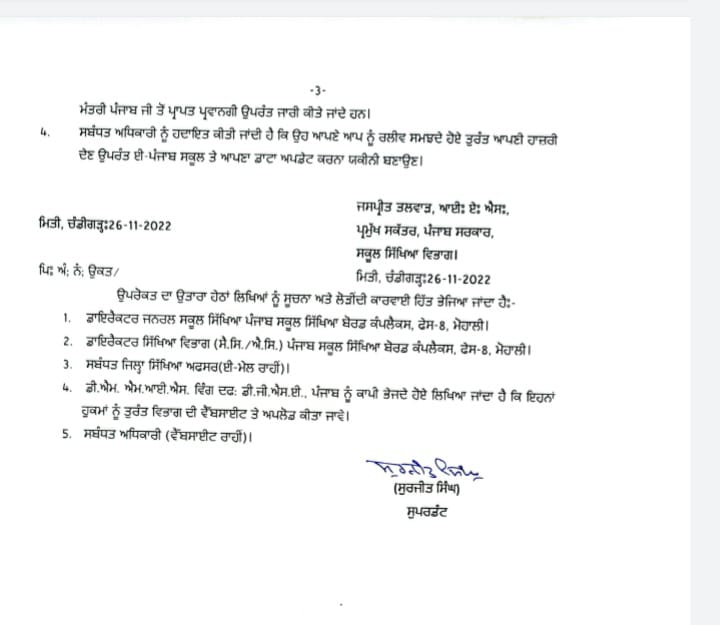 -3-
ਮੰਤਰੀ ਪੰਜਾਬ ਜੀ ਤੋਂ ਪ੍ਰਾਪਤ ਪ੍ਰਵਾਨਗੀ ਉਪਰੰਤ ਜਾਰੀ ਕੀਤੇ ਜਾਂਦੇ ਹਨ।
4. ਸਬੰਧਤ ਅਧਿਕਾਰੀ ਨੂੰ ਹਦਾਇਤ ਕੀਤੀ ਜਾਂਦੀ ਹੈ ਕਿ ਉਹ ਆਪਣੇ ਆਪ ਨੂੰ ਰਲੀਵ ਸਮਝਦੇ ਹੋਏ ਤੁਰੰਤ ਆਪਣੀ ਹਾਜ਼ਰੀ
ਦੇਣ ਉਪਰੰਤ ਈ-ਪੰਜਾਬ ਸਕੂਲ ਤੇ ਆਪਣਾ ਡਾਟਾ ਅਪਡੇਟ ਕਰਨਾ ਯਕੀਨੀ ਬਣਾਉਣ।
ਜਸਪ੍ਰੀਤ ਤਲਵਾੜ, ਆਈ: ਏ: ਐਸ:,
ਮਿਤੀ, ਚੰਡੀਗੜ੍ਹ:26-11-2022
ਪ੍ਰਮੁੱਖ ਸਕੱਤਰ, ਪੰਜਾਬ ਸਰਕਾਰ,
ਸਕੂਲ ਸਿੱਖਿਆ ਵਿਭਾਗ।
ਪਿ: ਅੰ: ਨੰ: ਉਕਤ/
ਮਿਤੀ, ਚੰਡੀਗੜ੍ਹ:26-11-2022
ਉਪਰੋਕਤ ਦਾ ਉਤਾਰਾ ਹੇਠਾਂ ਲਿਖਿਆਂ ਨੂੰ ਸੂਚਨਾ ਅਤੇ ਲੋੜੀਂਦੀ ਕਾਰਵਾਈ ਹਿੱਤ ਭੇਜਿਆ ਜਾਂਦਾ ਹੈ:-
1. ਡਾਇਰੈਕਟਰ ਜਨਰਲ ਸਕੂਲ ਸਿੱਖਿਆ ਪੰਜਾਬ ਸਕੂਲ ਸਿੱਖਿਆ ਬੋਰਡ ਕੰਪਲੈਕਸ, ਫੇਸ-8, ਮੋਹਾਲੀ।
2. ਡਾਇਰੈਕਟਰ ਸਿੱਖਿਆ ਵਿਭਾਗ (ਸੈ.ਸਿ./ਐ.ਸਿ.) ਪੰਜਾਬ ਸਕੂਲ ਸਿੱਖਿਆ ਬੋਰਡ ਕੰਪਲੈਕਸ, ਫੇਸ-8, ਮੋਹਾਲੀ।
3. ਸਬੰਧਤ ਜਿਲ੍ਹਾ ਸਿੱਖਿਆ ਅਫਸਰ(ਈ-ਮੇਲ ਰਾਹੀਂ)।
4. ਡੀ.ਐਮ. ਐਮ.ਆਈ.ਐਸ. ਵਿੰਗ ਦਫ: ਡੀ.ਜੀ.ਐਸ.ਈ., ਪੰਜਾਬ ਨੂੰ ਕਾਪੀ ਭੇਜਦੇ ਹੋਏ ਲਿਖਿਆ ਜਾਂਦਾ ਹੈ ਕਿ ਇਹਨਾਂ
ਹੁਕਮਾਂ ਨੂੰ ਤੁਰੰਤ ਵਿਭਾਗ ਦੀ ਵੈੱਬਸਾਈਟ ਤੇ ਅਪਲੋਡ ਕੀਤਾ ਜਾਵੇ।
5. ਸਬੰਧਤ ਅਧਿਕਾਰੀ (ਵੈੱਬਸਾਈਟ ਰਾਹੀਂ)।
ਸੁਰਜੀਤ ਸਿੰਘ
(ਸੁਰਜੀਤ ਸਿੰਘ)
ਸੁਪਰਡੰਟ